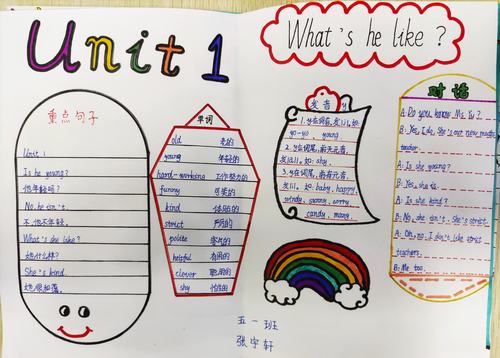 Unit 1
What's he like?
重点句子
Unit 1
Is he young?
他年轻吗?
No, he isn't.
不,他不年轻。
What's she like?
她什么样?
She's kind.
她很和蔼。
单词
old 老的
young 年轻的
hard-working 工作努力的
funny 可笑的
kind 体贴的
strict 严厉的
polite 客气的
helpful 有用的
clever 聪明的
shy 怕羞的
发音 y
1. y在词首,发[j],如
yo-yo, young
2. y在词尾,前无元音,
发[aɪ],如: shy.
3. y在词尾,前有元音,
发[i],如: baby, happy,
windy, sunny, sorry
candy, many.
对话
A: Do you know Ms Yu?
B: Yes, I do. She's our new music
teacher.
A: Is she young?
B: Yes, she is.
A: Is she kind?
B: No, she isn't. She's strict.
A: Oh, no. I don't like strict
teachers.
B: Me too.
五一班
张宇轩